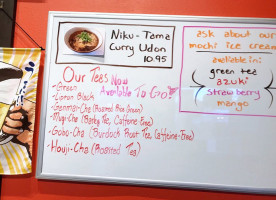 Niku-Tama
Curry Udon
10.95
ask about our
mochi ice cream
available in:
green tea
azuki
strawberry
mango
Our Teas Now
Available To Go!
-Green
-Lemon Black
-Genmai-Cha (Roasted Rice Green)
-Mugi-Cha (Barley Tea, Caffeine-Free)
-Gobo-Cha (Burdock Root Tea, Caffeine-Free)
-Houji-Cha (Roasted Tea)